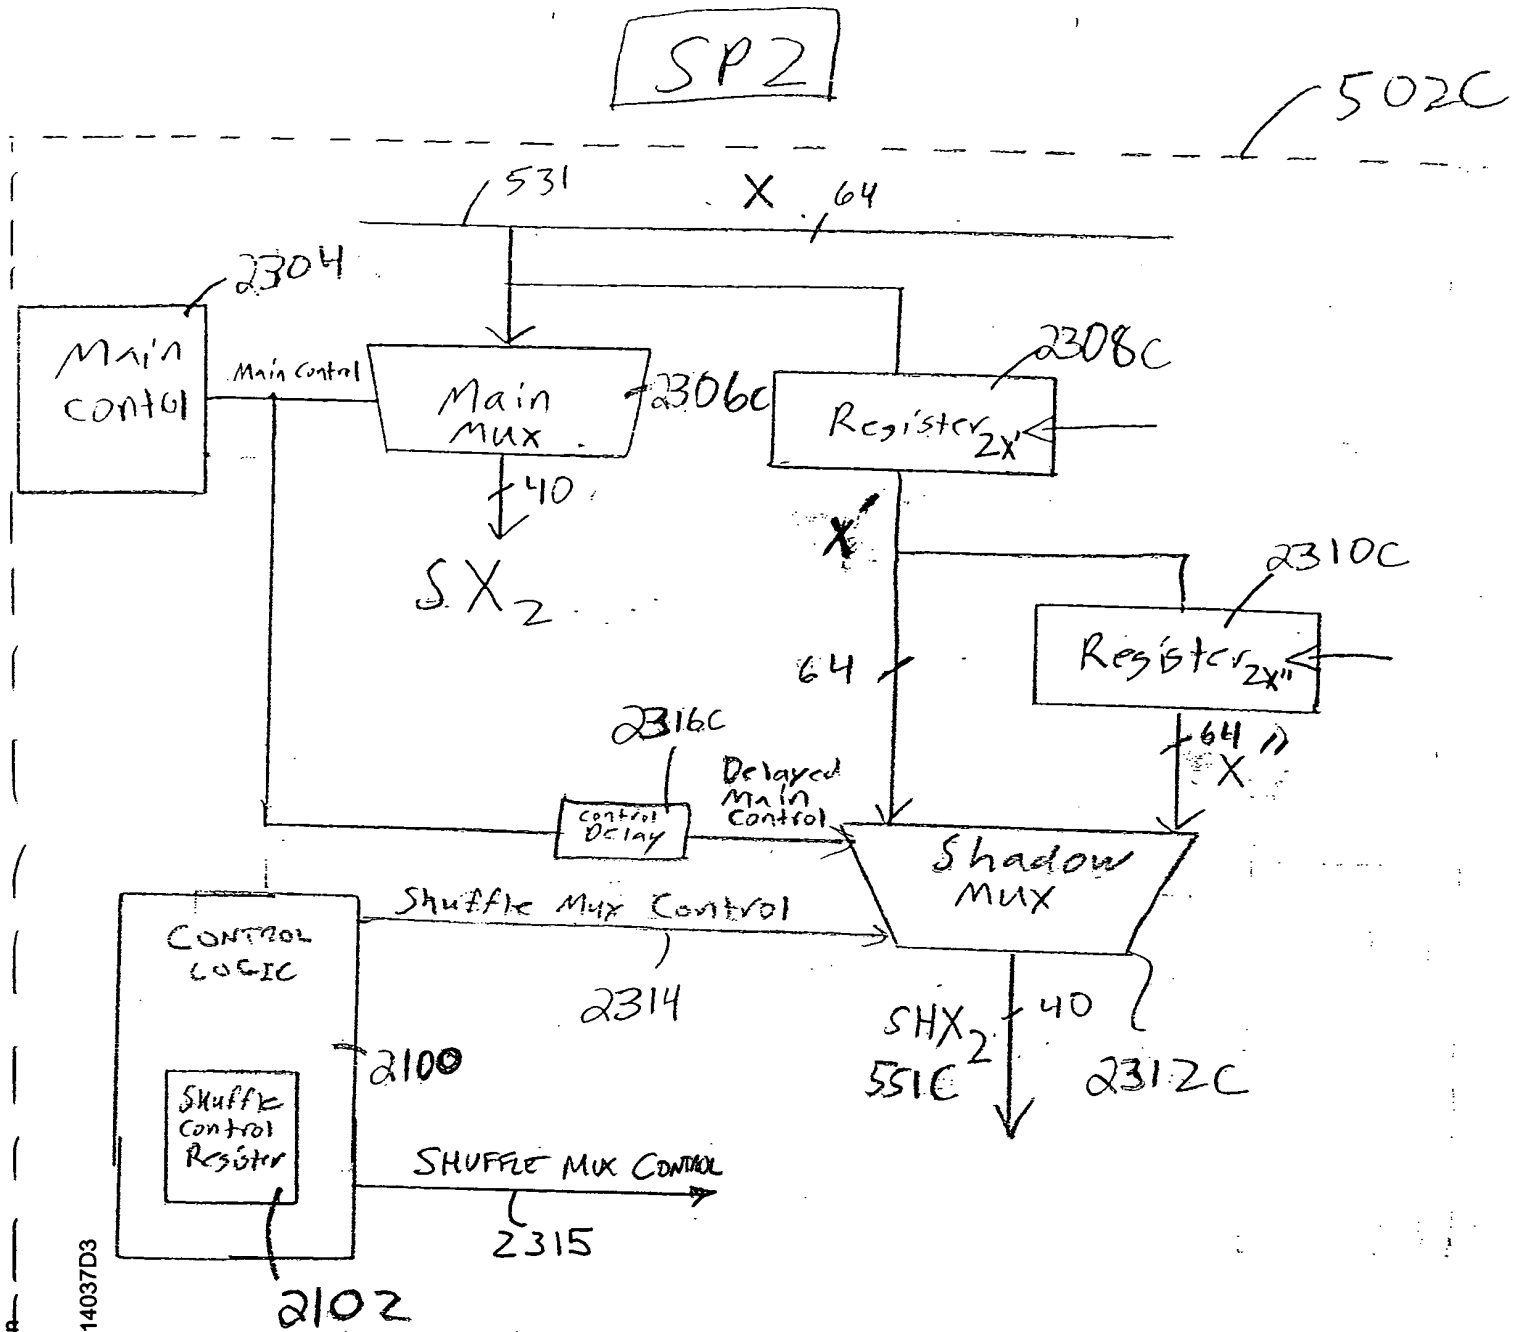 SP2
502C
531
X
64
2304
Main
Contol
Main Control
Main
Mux
2306C
2308C
Register 2X'
40
SX2
X'
2310C
Register 2X"
64
64
X"
2316C
Control
Delay
Delayed
Main
Control
Shadow
Mux
Shuffle Mux Control
2314
CONTROL
LOGIC
2100
SHX2
551C
40
2312C
Shuffle
Control
Register
SHUFFLE MUX CONTROL
2315
2102
14037D3